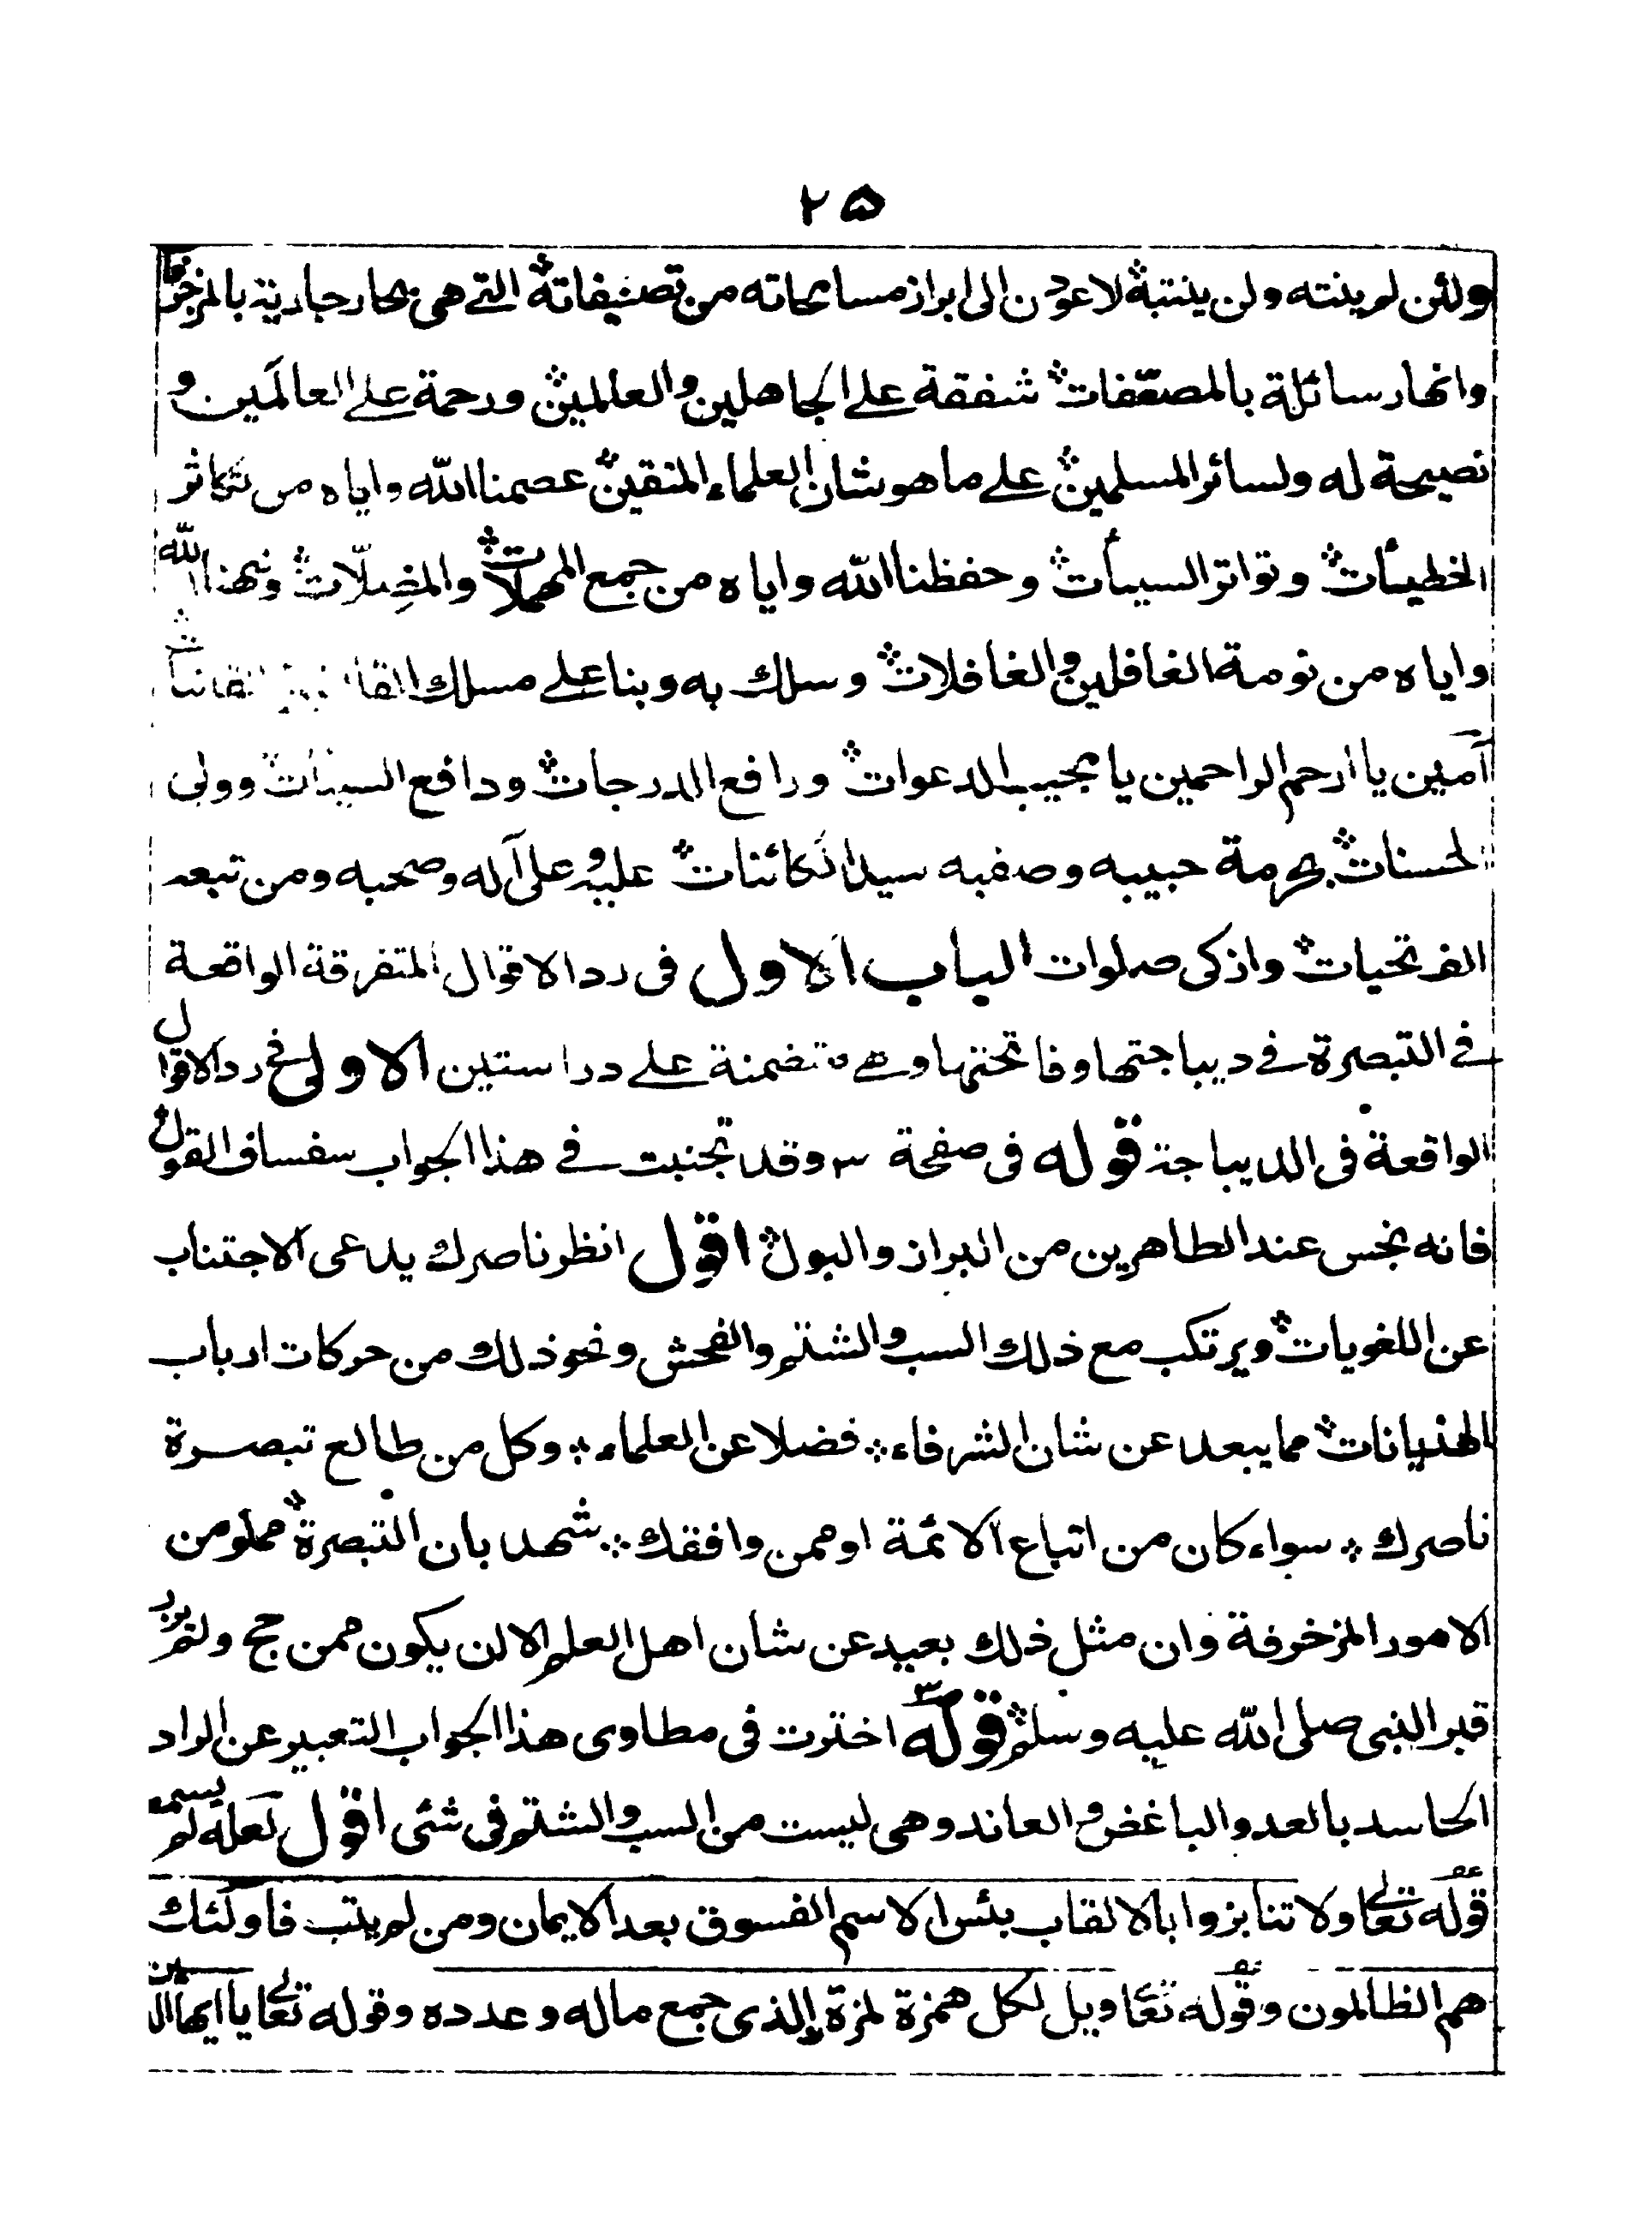 ٢٥
ولئن لم ينته ولن ينتبه لاعودن الى ابراز مسامحاته من تصنيفاته التي هي بحار جارية بالمزخرفات
وانهار سائلة بالمصحفات شفقة على الجاهلين والعالمين ورحمة على العالمين و
نصيحة له ولسائر المسلمين على ما هو شان العلماء المتقين عصمنا الله واياه من تكاثر
الخطيئات وتواتر السيئات وحفظنا الله واياه من جمع المهملات والمضلات ونبهنا الله
واياه من نومة الغافلين والغافلات وسلك به وبنا على مسلك
آمين يا ارحم الراحمين يا مجيب الدعوات ورافع الدرجات ودافع السيئات وولى
الحسنات بحرمة حبيبه وصفيه سيد الكائنات عليه وعلى آله وصحبه ومن تبعه
الف تحيات وازكى صلوات الباب الاول فى رد الاقوال المتفرقة الواقعة
فى التبصرة فى ديباجتها وفاتحتها وهى متضمنة على دراستين الاولى فى رد الاقوال
الواقعة فى الديباجة قوله فى صفحة ٣ وقد تجنبت فى هذا الجواب سفساف القول
فانه نجس عند الطاهرين من البراز والبول اقول انظر ناصرك يدعى الاجتناب
عن اللغويات ويرتكب مع ذلك السب والشتم والفحش ونحو ذلك من حركات ارباب
الهذيانات مما يبعد عن شان الشرفاء فضلا عن العلماء وكل من طالع تبصرة
ناصرك سواء كان من اتباع الائمة او ممن وافقك شهد بان التبصرة مملو من
الامور المزخرفة وان مثل ذلك بعيد عن شان اهل العلم الا لن يكون ممن حج ولم يزر
قبر النبى صلى الله عليه وسلم قوله ص٣ اخترت فى مطاوى هذا الجواب التعبير عن الراد
الحاسد بالعدو الباغض والعاند وهى ليست من السب والشتم فى شئ اقول لعله لم يسمع
قوله تعالى ولا تنابزوا بالالقاب بئس الاسم الفسوق بعد الايمان ومن لم يتب فاولئك
هم الظالمون وقوله تعالى ويل لكل همزة لمزة الذى جمع ماله وعدده وقوله تعالى يا ايها الذين